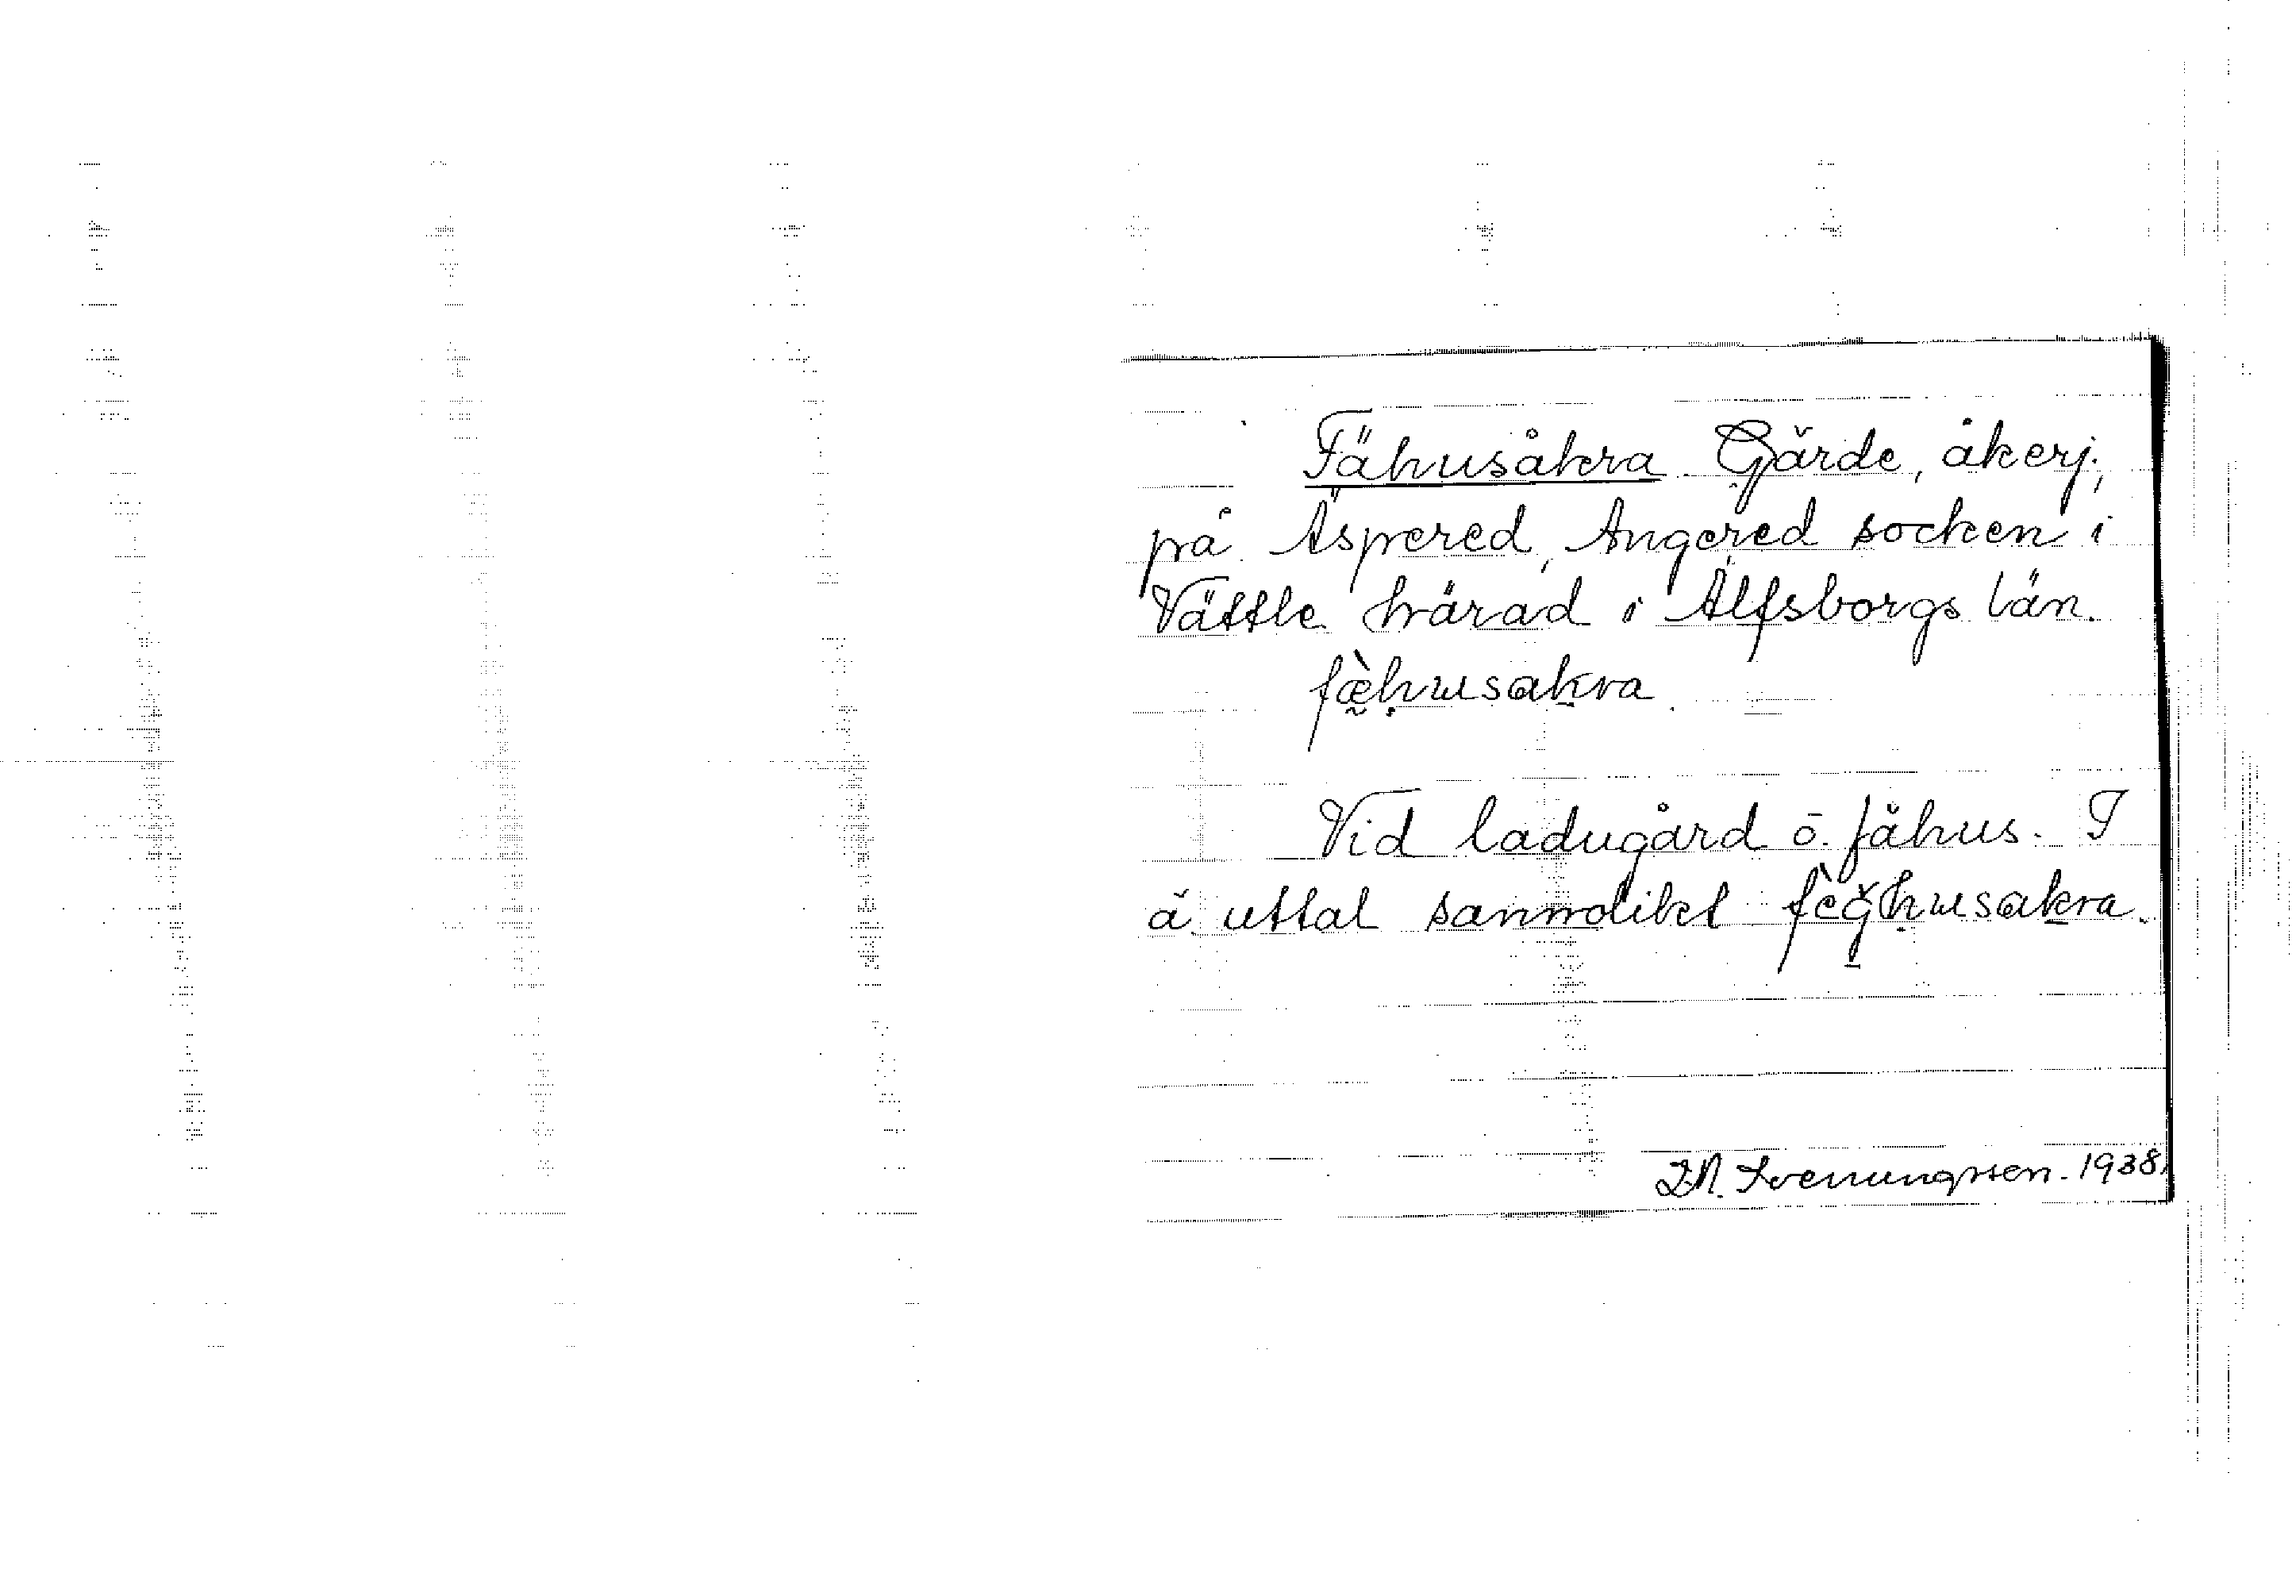 Fähusåkra. Gärde, åkerj.,
på Äspered, Angered socken i
Vättle härad i Älfsborgs län.
fæ̀husakra.
Vid ladugård o. fähus. I
ä. uttal sannolikt fèǧhusakra.
Svenungsson. 1938.